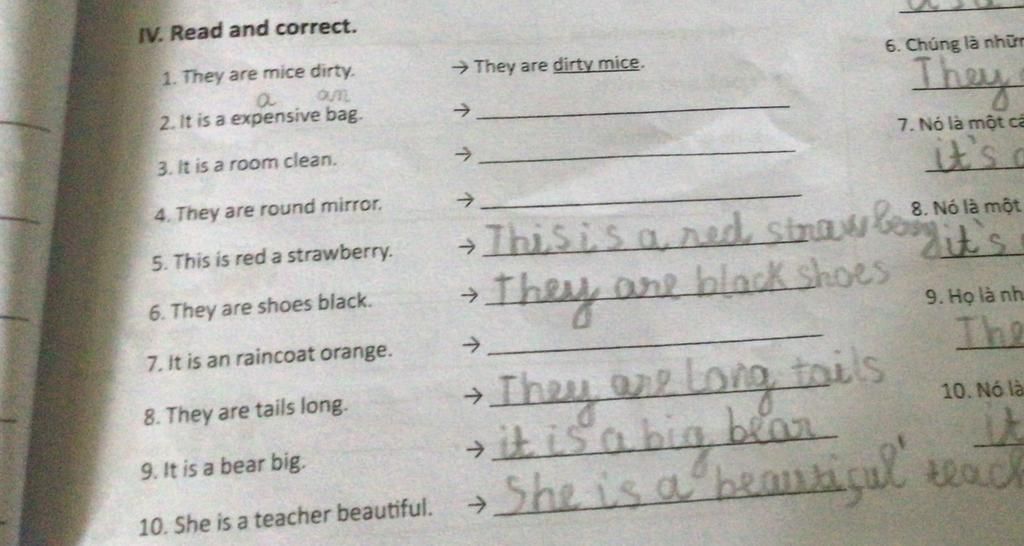 IV. Read and correct.
1. They are mice dirty. → They are dirty mice.
a an
2. It is a expensive bag. →
3. It is a room clean. →
4. They are round mirror. →
5. This is red a strawberry. → This is a red strawberry
6. They are shoes black. → They are black shoes
7. It is an raincoat orange. →
8. They are tails long. → They are long tails
9. It is a bear big. → it is a big bear
10. She is a teacher beautiful. → She is a beautiful teach
6. Chúng là nhữn
They
7. Nó là một cá
it's
8. Nó là một
it's
9. Họ là nh
The
10. Nó là
it